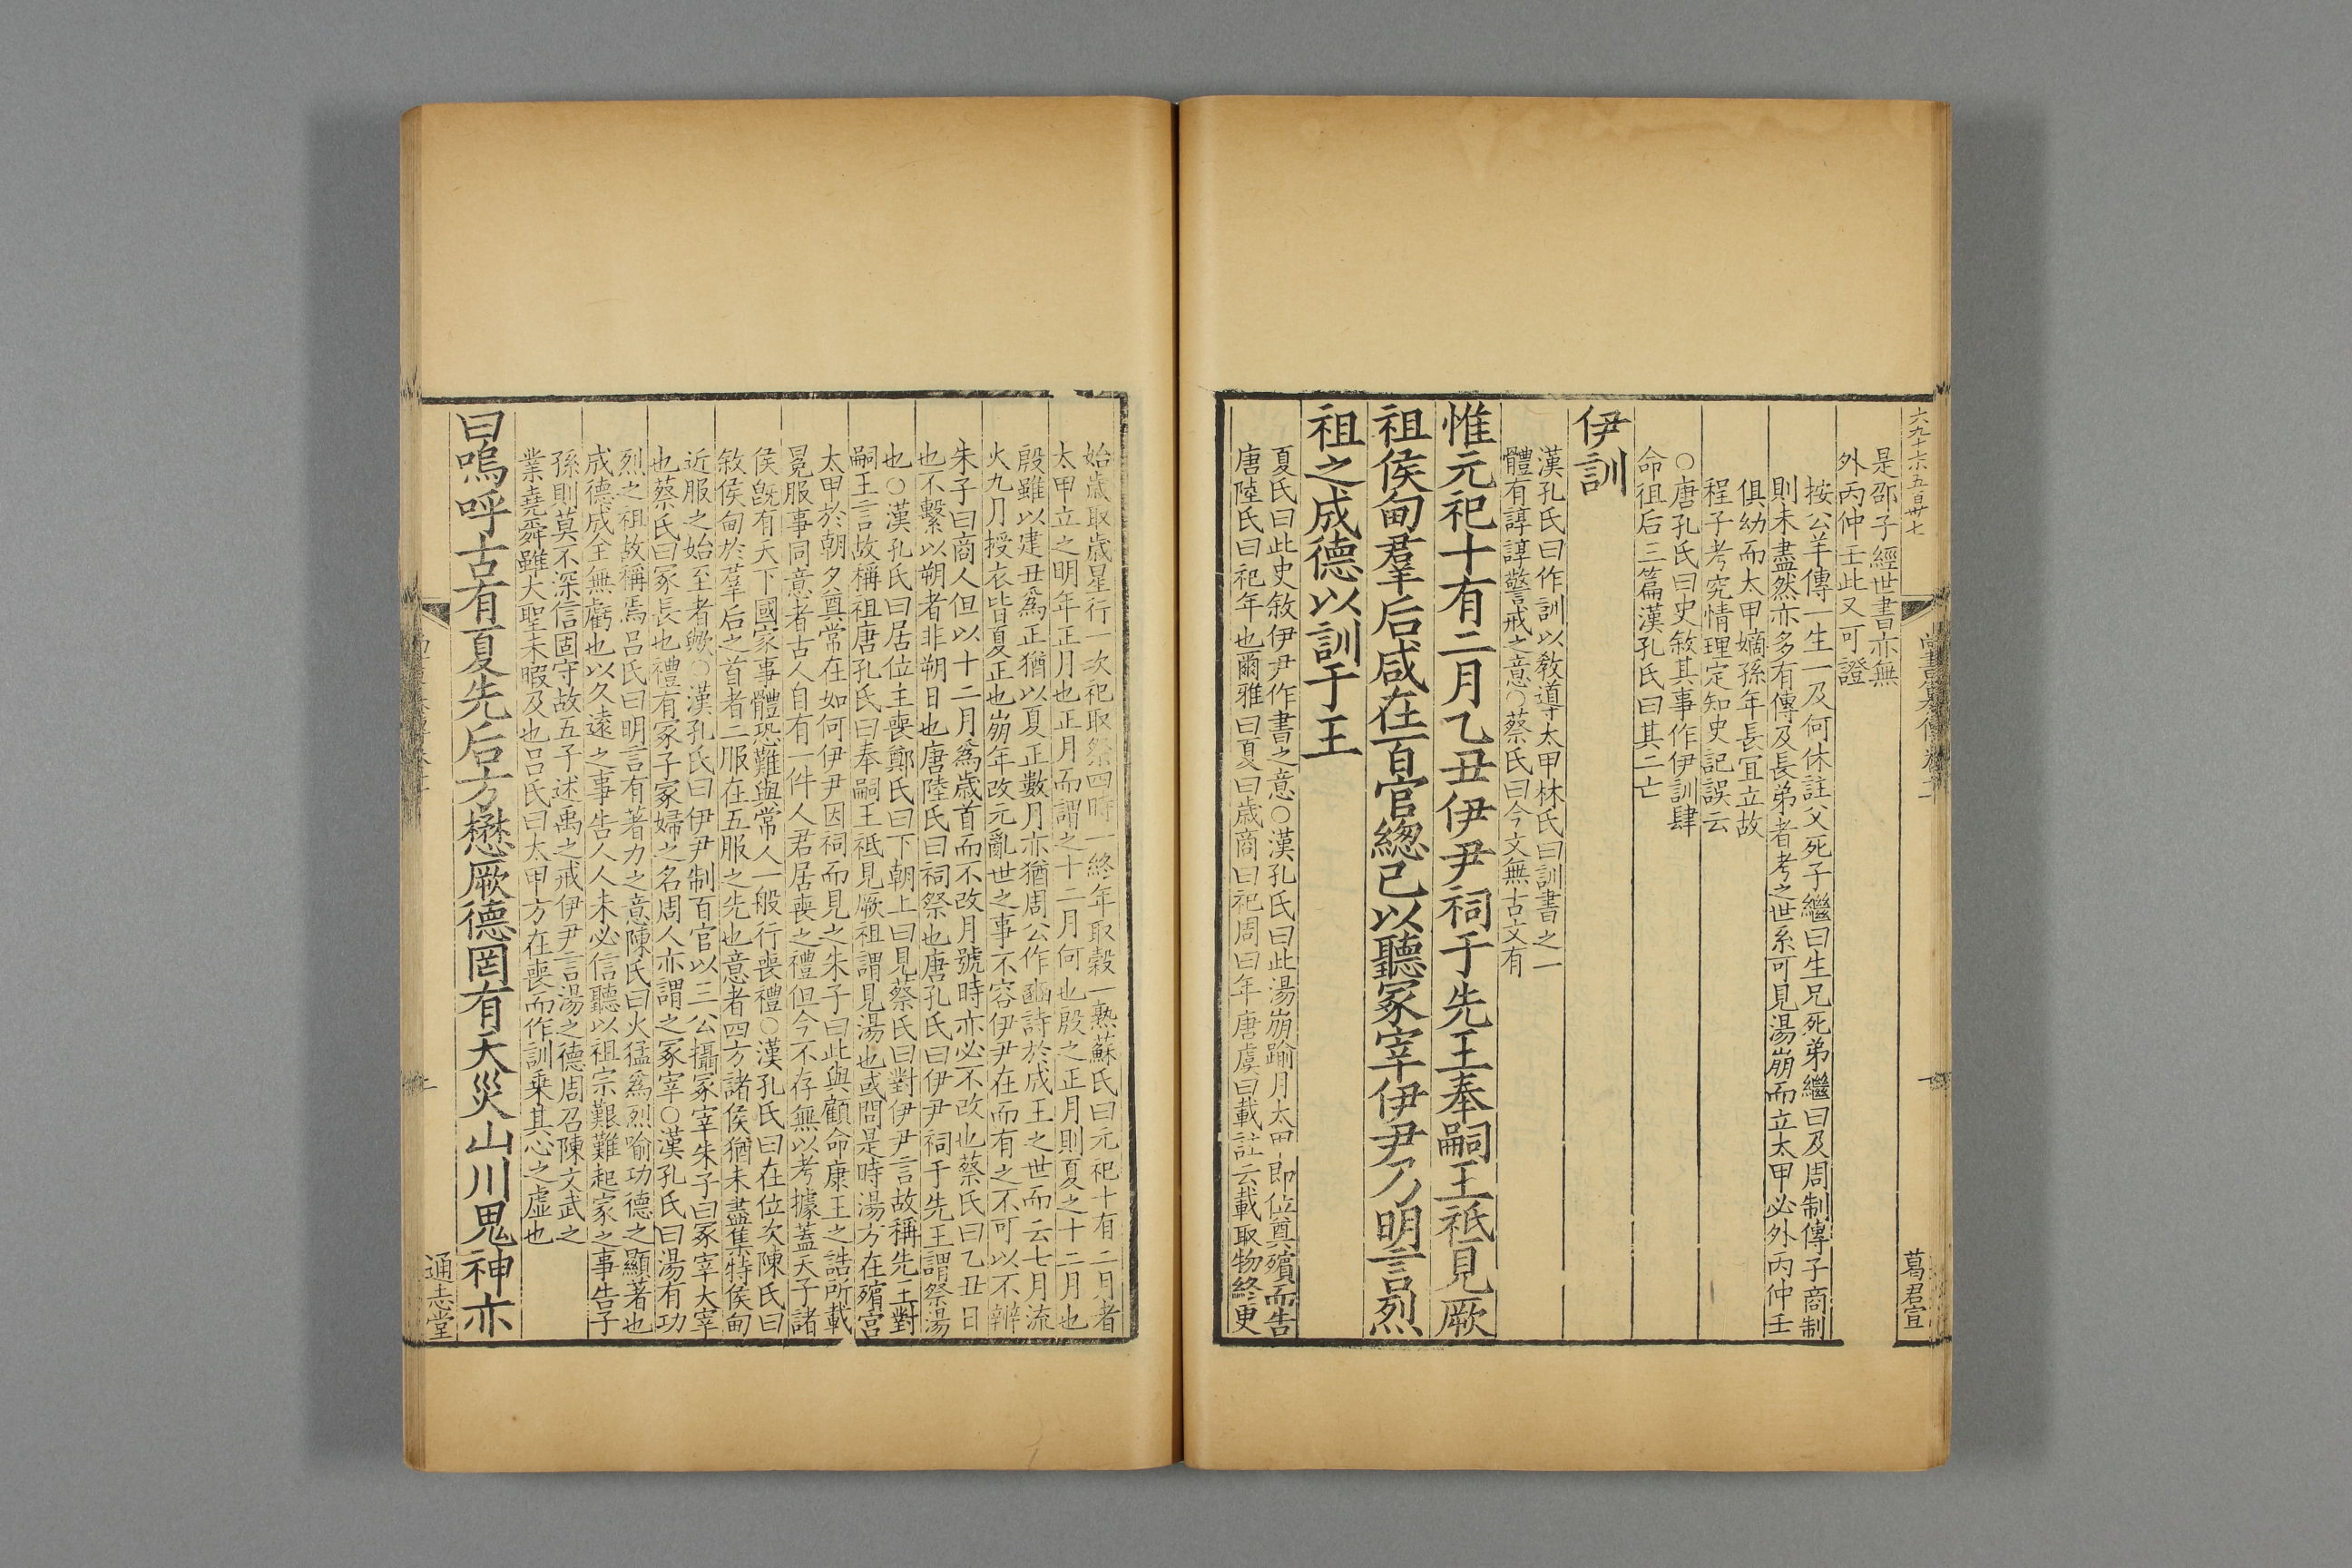 六九十六五百卅七
葛君宣
是邵子經世書亦無
外丙仲壬此又可證
按公羊傳一生一及何休註父死子繼曰生兄死弟繼曰及周制傳子商制
則未盡然亦多有傳及長弟者考之世系可見湯崩而立太甲必外丙仲壬
俱幼而太甲嫡孫年長宜立故
程子考究情理定知史記誤云
○唐孔氏曰史敘其事作伊訓肆
命徂后三篇漢孔氏曰其二亡
伊訓
漢孔氏曰作訓以敎道太甲林氏曰訓書之一
體有諄諄警戒之意○蔡氏曰今文無古文有
惟元祀十有二月乙丑伊尹祠于先王奉嗣王祗見厥
祖侯甸羣后咸在百官總己以聽冢宰伊尹乃明言烈
祖之成德以訓于王
夏氏曰此史敘伊尹作書之意○漢孔氏曰此湯崩踰月太甲即位奠殯而告
唐陸氏曰祀年也爾雅曰夏曰歳商曰祀周曰年唐虞曰載註云載取物終更
始歳取歳星行一次祀取祭四時一終年取穀一熟蘇氏曰元祀十有二月者
太甲立之明年正月也正月而謂之十二月何也殷之正月則夏之十二月也
殷雖以建丑爲正猶以夏正數月亦猶周公作豳詩於成王之世而云七月流
火九月授衣皆夏正也崩年改元亂世之事不容伊尹在而有之不可以不辨
朱子曰商人但以十二月爲歳首而不改月號時亦必不改也蔡氏曰乙丑日
也不繫以朔者非朔日也唐陸氏曰祠祭也唐孔氏曰伊尹祠于先王謂祭湯
也○漢孔氏曰居位主喪鄭氏曰下朝上曰見蔡氏曰對伊尹言故稱先王對
嗣王言故稱祖唐孔氏曰奉嗣王祗見厥祖謂見湯也或問是時湯方在殯宮
太甲於朝夕奠常在如何伊尹因祠而見之朱子曰此與顧命康王之誥所載
冕服事同意者古人自有一件人君居喪之禮但今不存無以考據蓋天子諸
侯旣有天下國家事體恐難與常人一般行喪禮○漢孔氏曰在位次陳氏曰
敘侯甸於羣后之首者二服在五服之先也意者四方諸侯猶未盡集特侯甸
近服之始至者歟○漢孔氏曰伊尹制百官以三公攝冢宰朱子曰冢宰大宰
也蔡氏曰冢長也禮有冢子冢婦之名周人亦謂之冢宰○漢孔氏曰湯有功
烈之祖故稱焉呂氏曰明言有著力之意陳氏曰火猛爲烈喻功德之顯著也
成德成全無虧也以久遠之事告人人未必信聽以祖宗艱難起家之事告子
孫則莫不深信固守故五子述禹之戒伊尹言湯之德周召陳文武之
業堯舜雖大聖未暇及也呂氏曰太甲方在喪而作訓乗其心之虛也
曰嗚呼古有夏先后方懋厥德罔有天災山川鬼神亦
通志堂